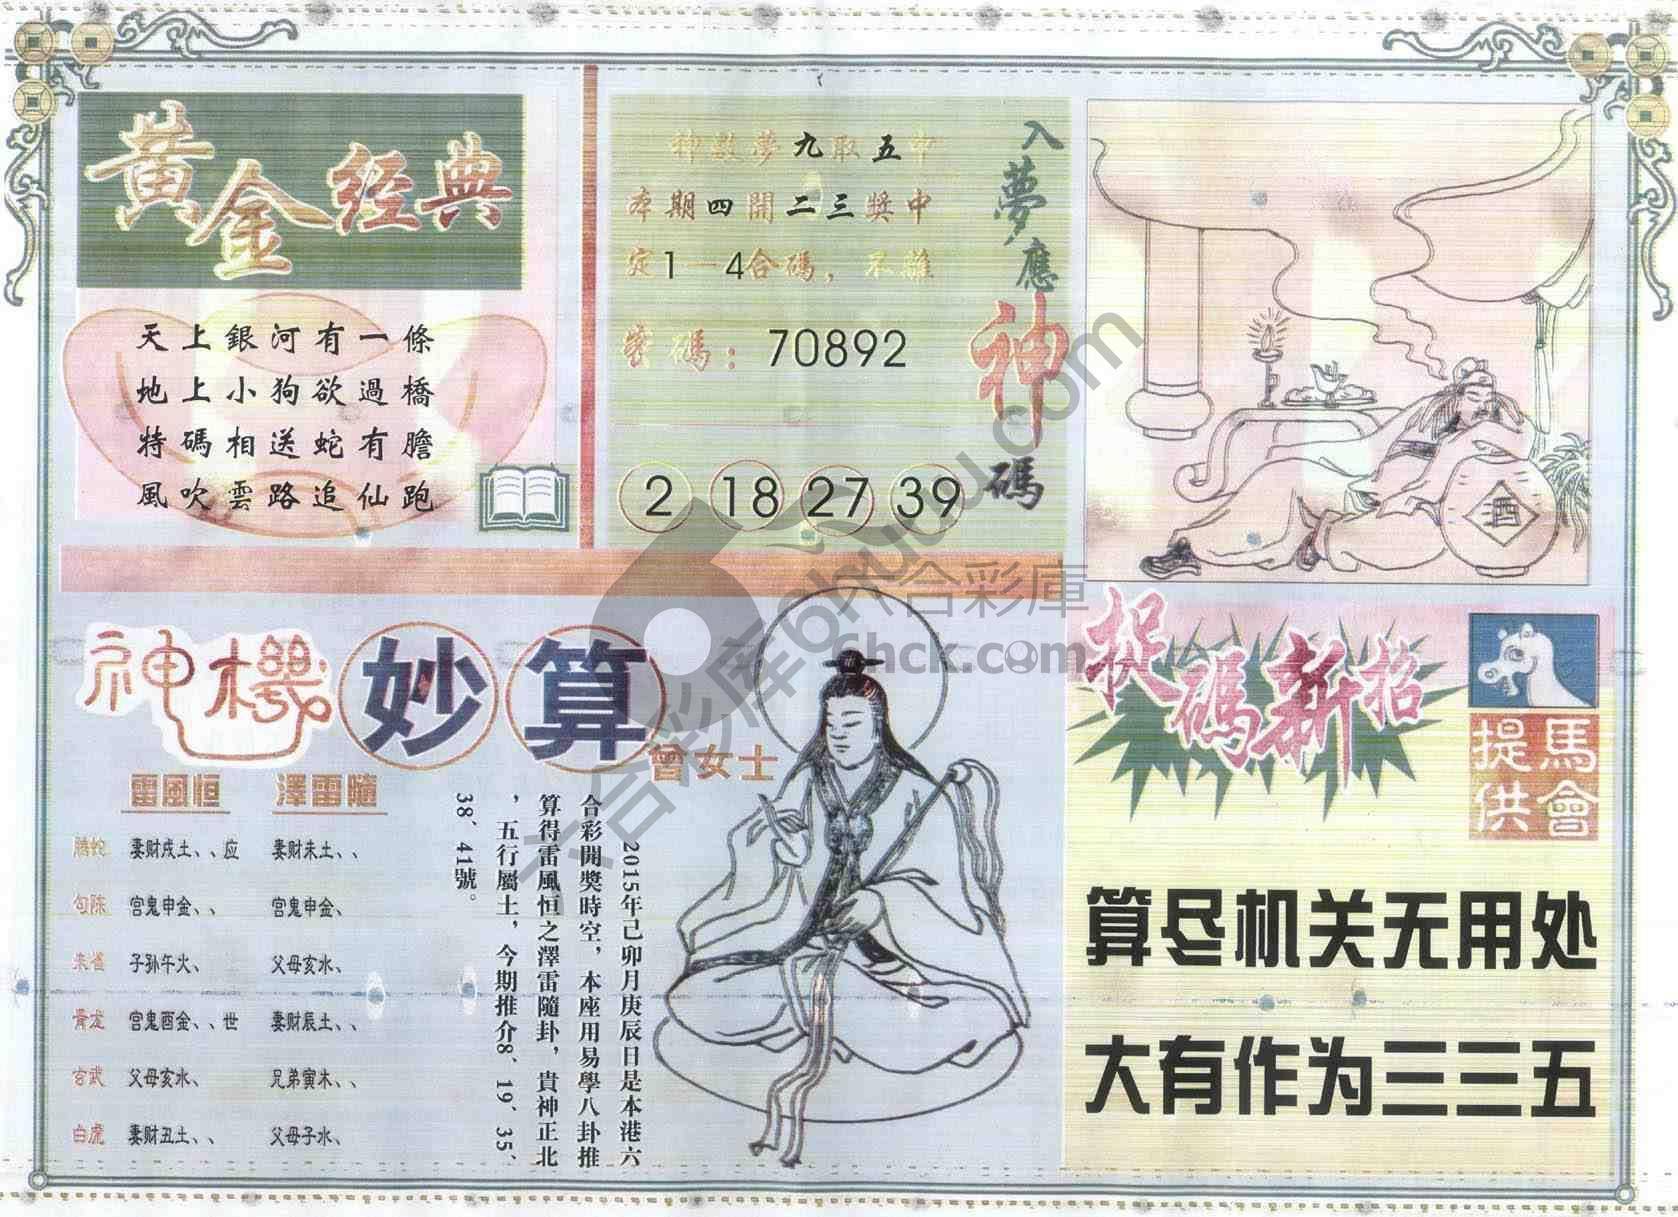 黃金經典
天上銀河有一條
地上小狗欲過橋
特碼相送蛇有膽
風吹雲路追仙跑
神數夢九取五中
本期四開二三獎中
定1一4合碼，不離
密碼：70892
2 18 27 39
入夢應神碼
酒
神機妙算
曾女士
雷風恒 澤雷隨
螣蛇 妻财戌土、、应 妻财未土、、
勾陈 宫鬼申金、、 宫鬼申金、
朱雀 子孙午火、 父母亥水、
青龙 宫鬼酉金、、世 妻财辰土、、
玄武 父母亥水、 兄弟寅木、、
白虎 妻财丑土、、 父母子水、
2015年己卯月庚辰日是本港六
合彩開獎時空，本座用易學八卦推
算得雷風恒之澤雷隨卦，貴神正北
，五行屬土，今期推介8、19、35、
38、41號。
捉碼新招
馬會
提供
算尽机关无用处
大有作为三三五
六合彩庫
六合彩库
6hck.com